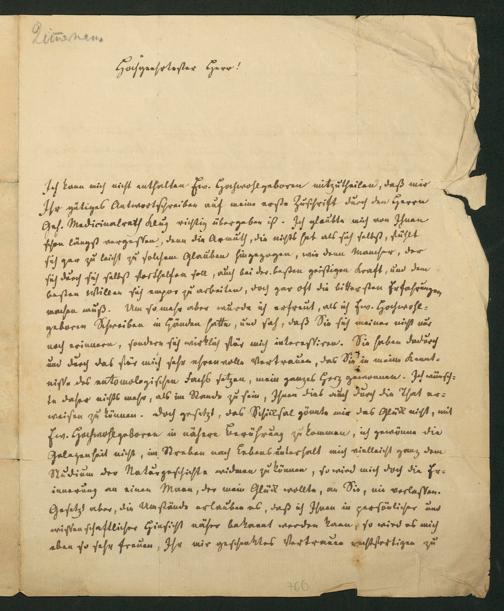 Hochgeehrtester Herr!
Ich kann mich nicht enthalten Ew. Hochwohlgeboren mitzutheilen, daß mir
Ihr gütiges Antwortschreiben auf meine erste Zuschrift durch den Herrn
Geh. Medicinalrath Klug richtig übergeben ist. Ich glaubte mich von Ihnen
schon längst vergessen, denn die Armuth, die nichts hat als sich selbst, fühlt
sich gar zu leicht zu solchem Glauben hingezogen, wie denn Mancher, der
sich durch sich selbst forthelfen soll, auch bei der besten geistigen Kraft, und dem
besten Willen sich empor zu arbeiten, doch gar oft die bittersten Erfahrungen
machen muß. Um so mehr aber wurde ich erfreut, als ich Ew. Hochwohl-
geboren Schreiben in Händen hatte, und sah, daß Sie sich meiner nicht nur
noch erinnern, sondern sich wirklich für mich interessiren. Sie haben dadurch
und durch das für mich sehr ehrenvolle Vertrauen, das Sie in meine Kennt-
nisse des entomologischen Fachs setzen, mein ganzes Herz gewonnen. Ich wünsch-
te daher nichts mehr, als im Stande zu sein, Ihnen dies auch durch die That er-
weisen zu können. Doch gesetzt, das Schicksal gönnte mir das Glück nicht, mit
Ew. Hochwohlgeboren in nähere Berührung zu kommen, ich gewönne die
Gelegenheit nicht, im Streben nach Lebensunterhalt mich vielleicht ganz dem
Studium der Naturgeschichte widmen zu können, so wird mich doch die Er-
innerung an einen Mann, der mein Glück wollte, an Sie, nie verlassen.
Gesetzt aber, die Umstände erlauben es, daß ich Ihnen in persönlicher und
wissenschaftlicher Hinsicht näher bekannt werden kann, so wird es mich
eben so sehr freuen, Ihr mir geschenktes Vertrauen rechtfertigen zu
766